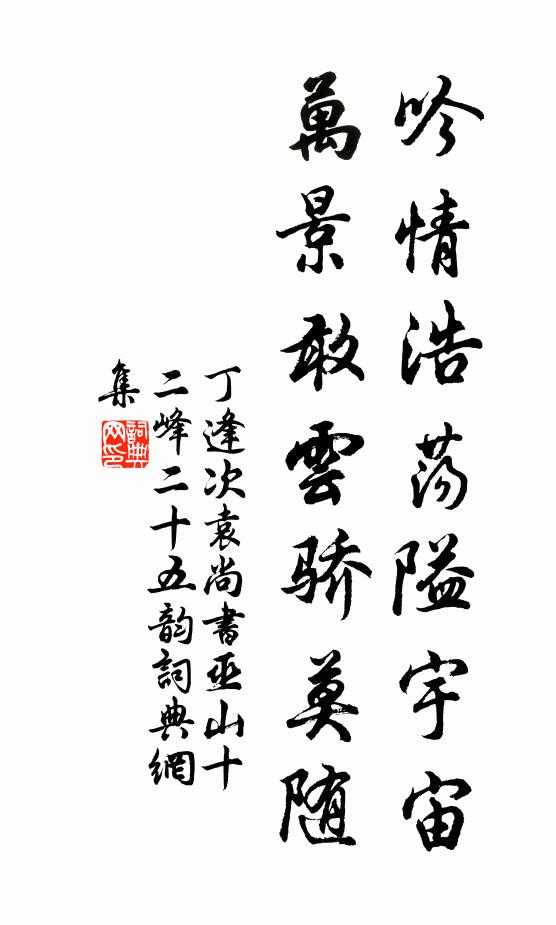 吟情浩荡隘宇宙
萬景敢雲骄莫随
丁逢次袁尚書巫山十
二峰二十五韵詞典網
集
詞典
网印